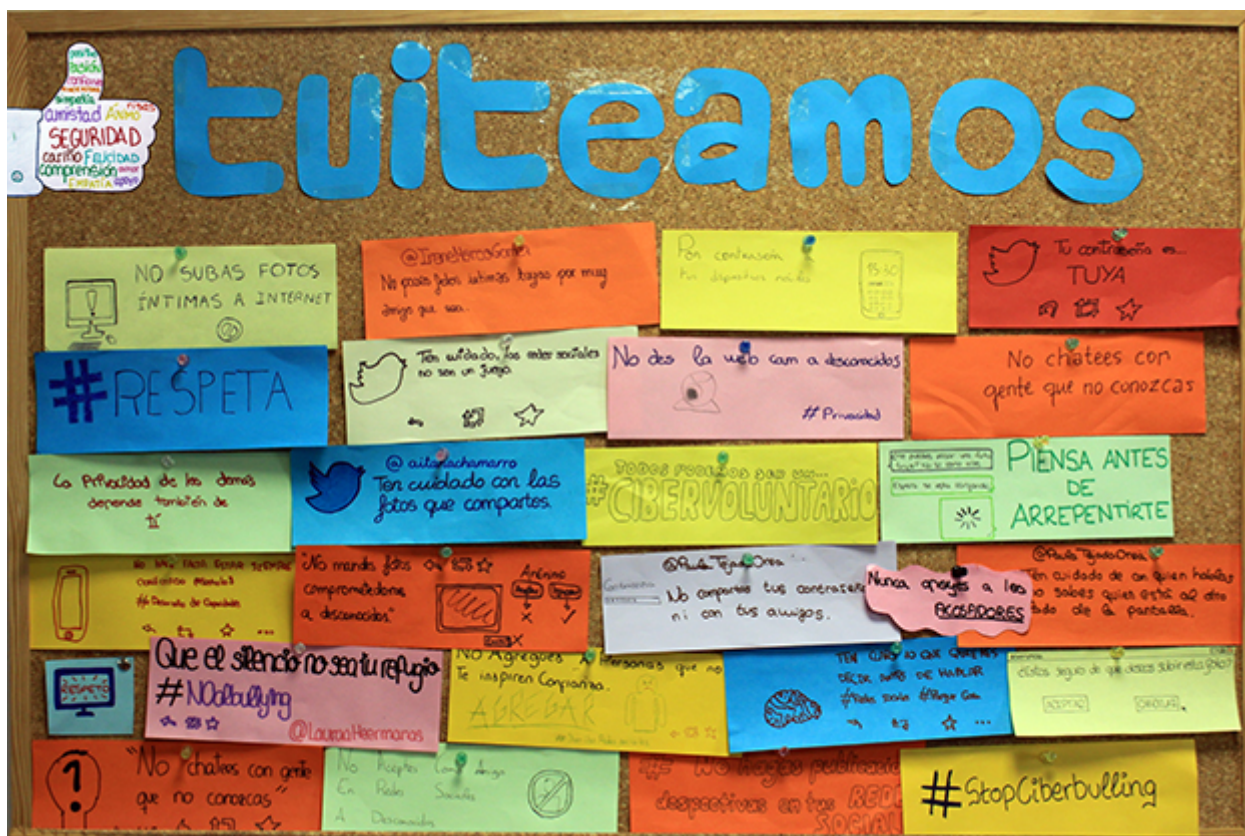 amistad
SEGURIDAD
cariño FELICIDAD
comprensión
EMPATÍA apoyo
tuiteamos
NO SUBAS FOTOS
ÍNTIMAS A INTERNET
No pases fotos íntimas tuyas por muy
amigo que sea..
Pon contraseña
tus dispositivos
15:30
Tu contraseña es...
TUYA
#RESPETA
Ten cuidado, las redes sociales
no son un juego.
No des la web cam a desconocidos
#Privacidad
No chatees con
gente que no conozcas
La Privacidad de los demas
depende también de
tí
@aitanachamarro
Ten cuidado con las
fotos que compartes.
TODOS PODEMOS SER UN...
#CIBERVOLUNTARIO
PIENSA ANTES
DE
ARREPENTIRTE
"No mandes fotos
comprometedoras
a desconocidos"
Anónimo
No compartas tus
ni con tus amigos.
Nunca apoyes a los
ACOSADORES
Ten cuidado de con quien hablas
no sabes quien está al otro
lado de la pantalla.
RESPETO
Que el silencio no sea tu refugio
#NOalbullying
NO Agregues A Personas que no
Te inspiren Confianza.
AGREGAR
TEN CLARO LO QUE QUIERES
DECIR ANTES DE HABLAR
¿Estás seguro de que deseas subir esta foto?
ACEPTAR
CANCELAR
"No chatees con gente
que no conozcas"
No Aceptes Como Amigo
En Redes Sociales
A Desconocidos
# No hagas
despectivas en tus
SOCIAL
#StopCiberbulling